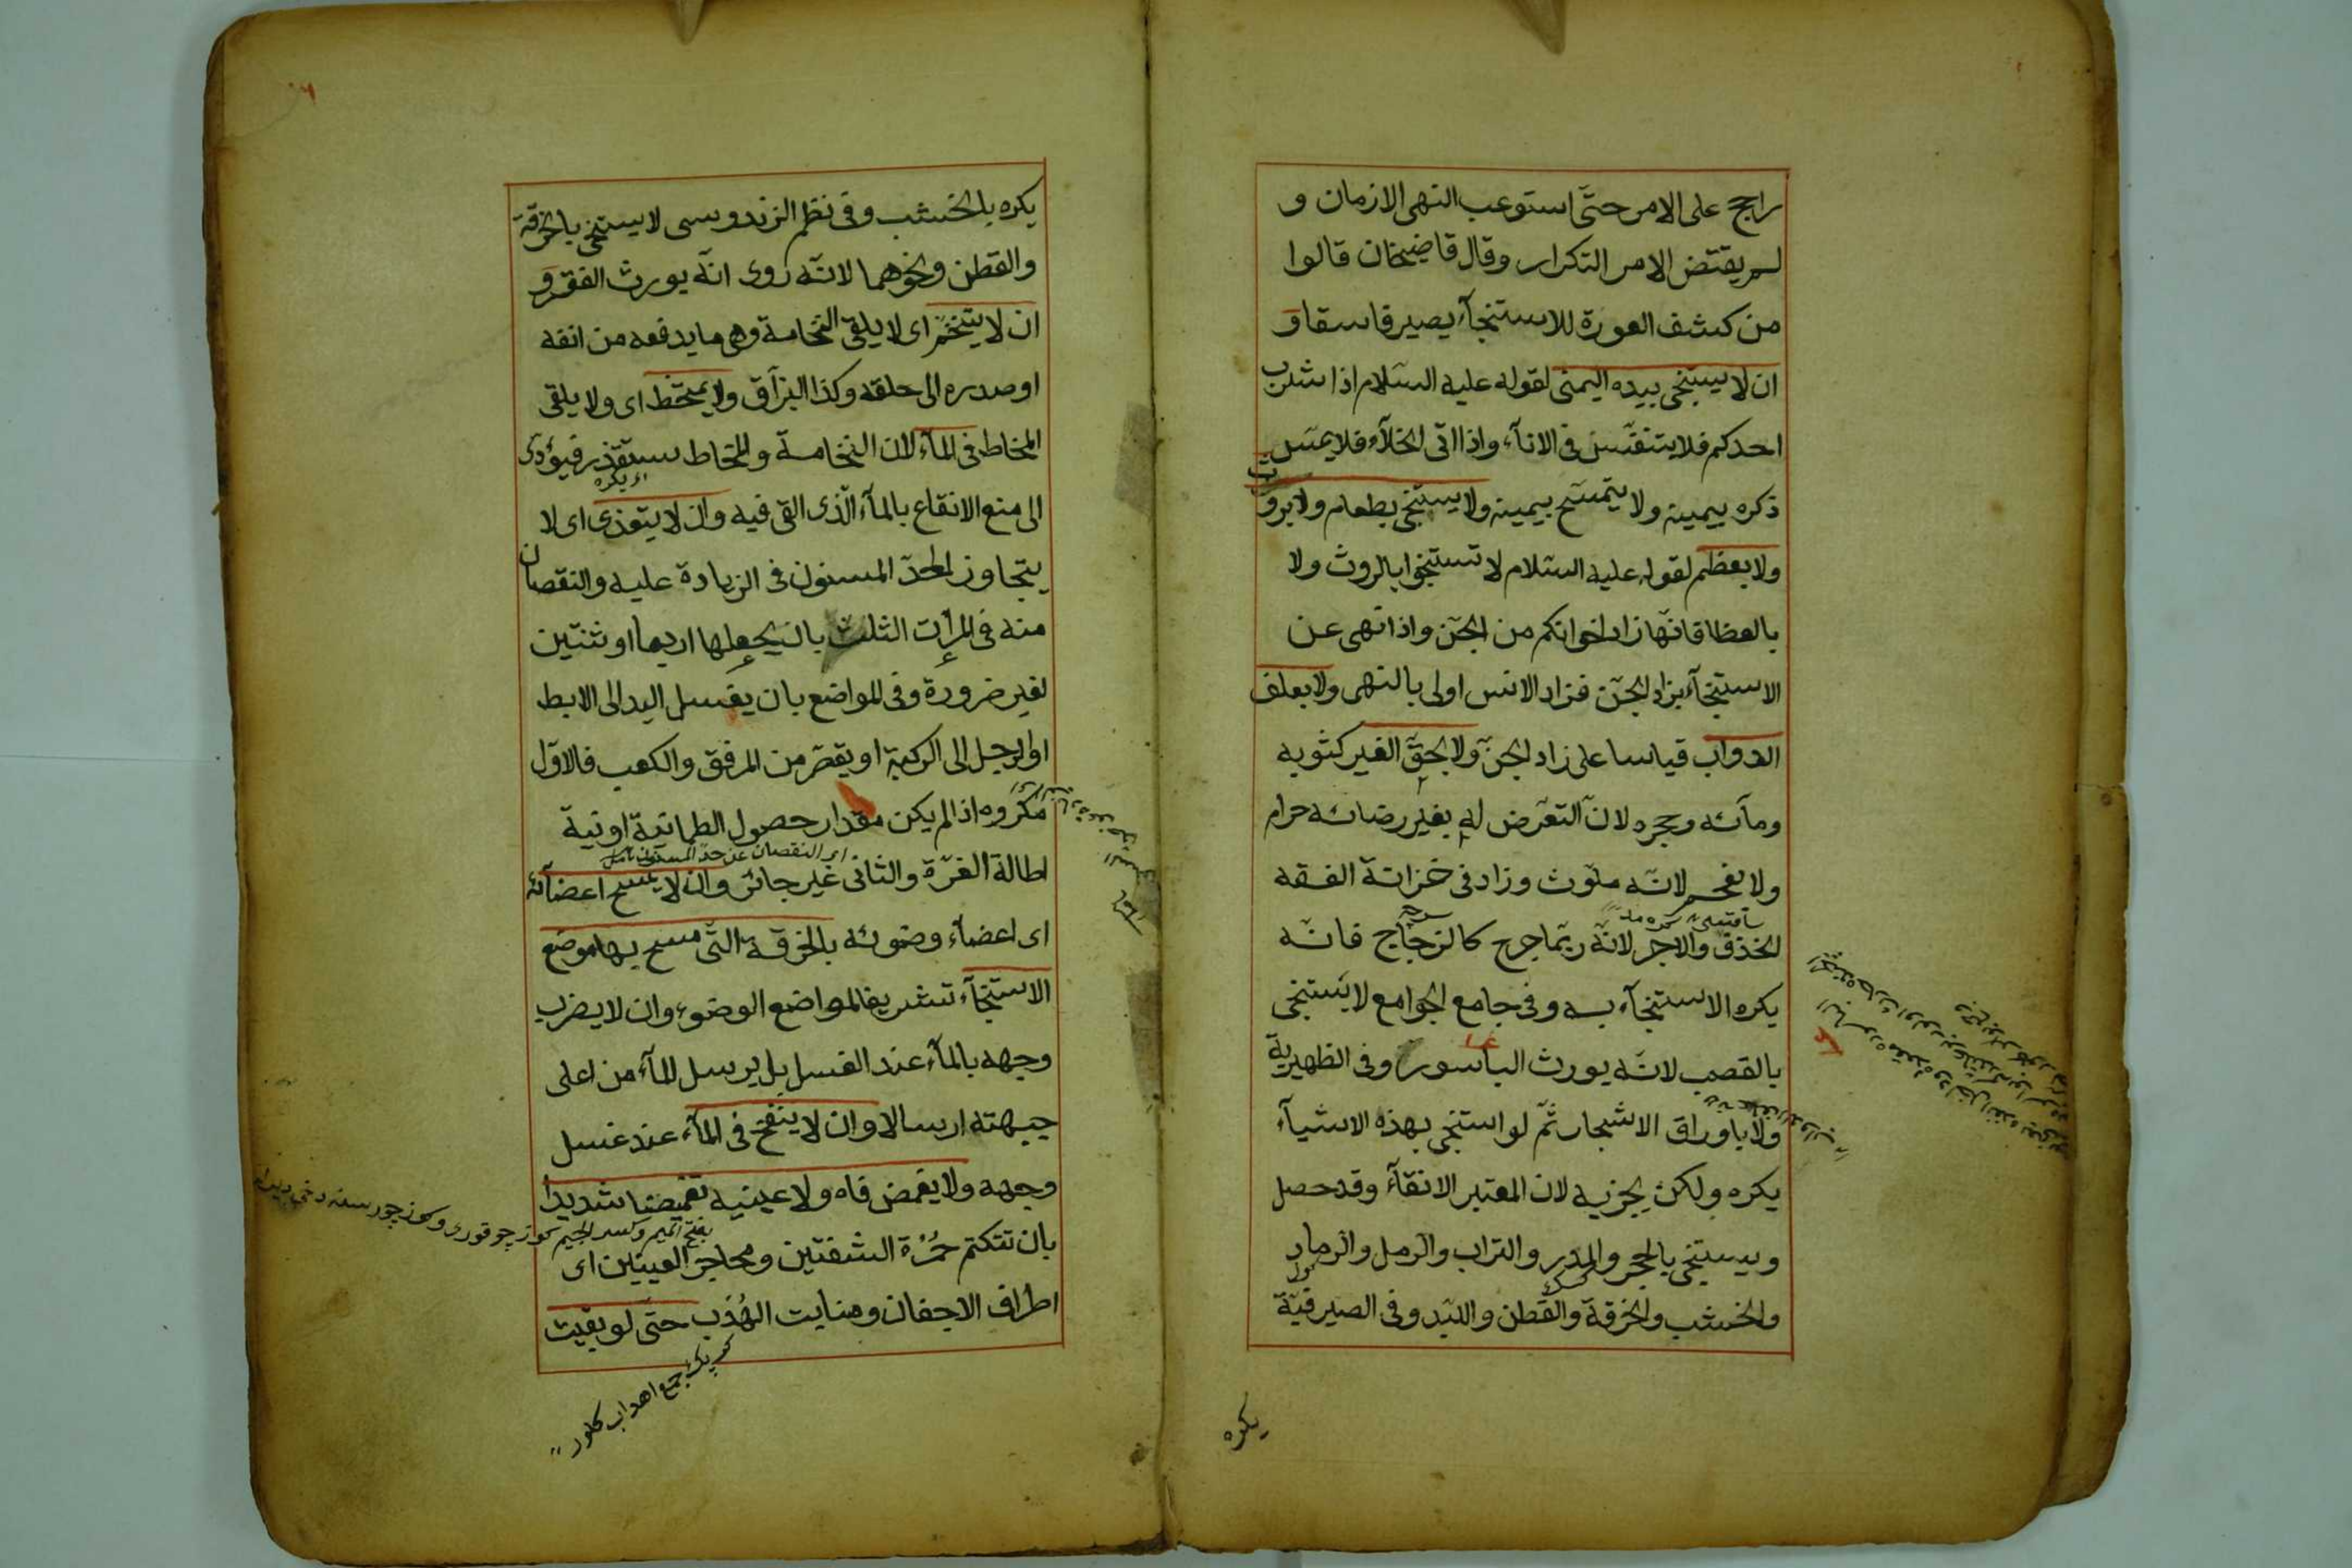 راجح على الامر حتّى استوعب النهى الازمان و
لم يقتض الامر التكرار وقال قاضيخان قالوا
من كشف العورة للاستنجآء يصير فاسقا و
ان لا يستنجى بيده اليمنى لقوله عليه السّلام اذا شرب
احدكم فلا يتنفّس فى الانآء واذا اتى الخلآء فلا يمسّ
ذكره بيمينه ولا يتمسّح بيمينه ولا يستنجى بطعام ولا بروث
ولا بعظم لقوله عليه السّلام لا تستنجوا بالروث ولا
بالعظا فانّها زاد اخوانكم من الجنّ واذا نهى عن
الاستنجآء بزاد الجنّ فزاد الانس اولى بالنهى ولا بعلف
الدواب قياسا على زاد الجنّ ولا بحقّ الغير كثوبه
ومآئه وحجره لانّ التعرّض له بغير رضائه حرام
ولا بفحم لانّه ملوّث وزاد فى خزانة الفقه
الخذف والاجر لانّه ربّما جرح كالزجّاج فانّه
يكره الاستنجآء به وفى جامع الجوامع لا يستنجى
بالقصب لانّه يورث الباسور وفى الظهيرية
ولا باوراق الاشجار ثمّ لو استنجى بهذه الاشيآء
يكره ولكن يجزيه لان المعتبر الانقآء وقد حصل
ويستنجى بالحجر والمدر والتراب والرمل والرماد
والخشب والخرقة والقطن واللبد وفى الصيرفيّة
يكره
يكره بالخشب وفى نظم الزندوسى لا يستنجى بالخرقة
والقطن ونحوهما لانّه روى انّه يورث الفقر و
ان لا يتنخّم اى لا يلقى النخامة وهى ما يدفعه من انفه
او صدره الى حلقه وكذا البزآق ولا يمتخط اى ولا يلقى
المخاط فى المآء لان النخامة والمخاط يستقذر فيؤدى
اى يكره
الى منع الانقاع بالمآء الّذى القى فيه وان لا يتعدى اى لا
يتجاوز الحدّ المسنون فى الزيادة عليه والنقصان
منه فى المرّات الثلث بان يجعلها اربعا او ثنتين
لغير ضرورة وفى المواضع بان يغسل اليد الى الابط
او الرجل الى الركبة او يقصّر من المرفق والكعب فالاوّل
مكروه اذا لم يكن مقدار حصول الطمانية او نية
اى النقصان عن حدّ المسنون تأمل
اطالة الغرّة والثانى غير جائز وان لا يمسح اعضآئه
اى اعضآء وضوئه بالخرقة الّتى مسح بها موضع
الاستنجآء تشريفا لمواضع الوضوء وان لا يضرب
وجهه بالمآء عند الغسل بل يرسل المآء من اعلى
جبهته ارسالا وان لا ينفخ فى المآء عند غسل
وجهه ولا يغمض فاه ولا عينيه تغميضا شديدا
بفتح الميم وكسر الجيم
بان تنكتم حُمرة الشفتين ومحاجر العينين اى
اطراف الاجفان ومنابت الهُذب حتّى لو بقيت
كربك جمع اهداب كلور